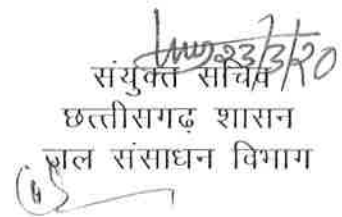 23/3/20
संयुक्त सचिव
छत्तीसगढ़ शासन
जल संसाधन विभाग